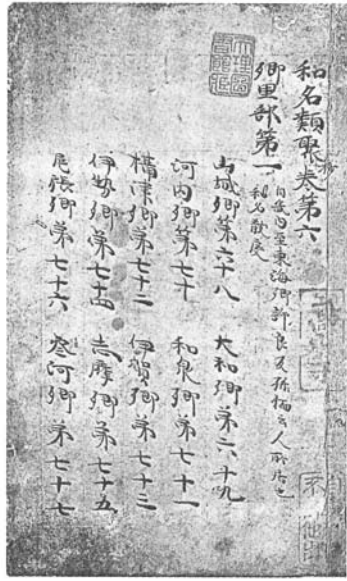 和名類聚抄巻第六
郷里部第一 自畿内至東海郷許良反 人所居也
和名
山城郷第六十八 大和郷第六十九
河内郷第七十 和泉郷第七十一
攝津郷第七十二 伊賀郷第七十三
伊勢郷第七十四 志摩郷第七十五
尾張郷第七十六 參河郷第七十七
天理圖書館藏